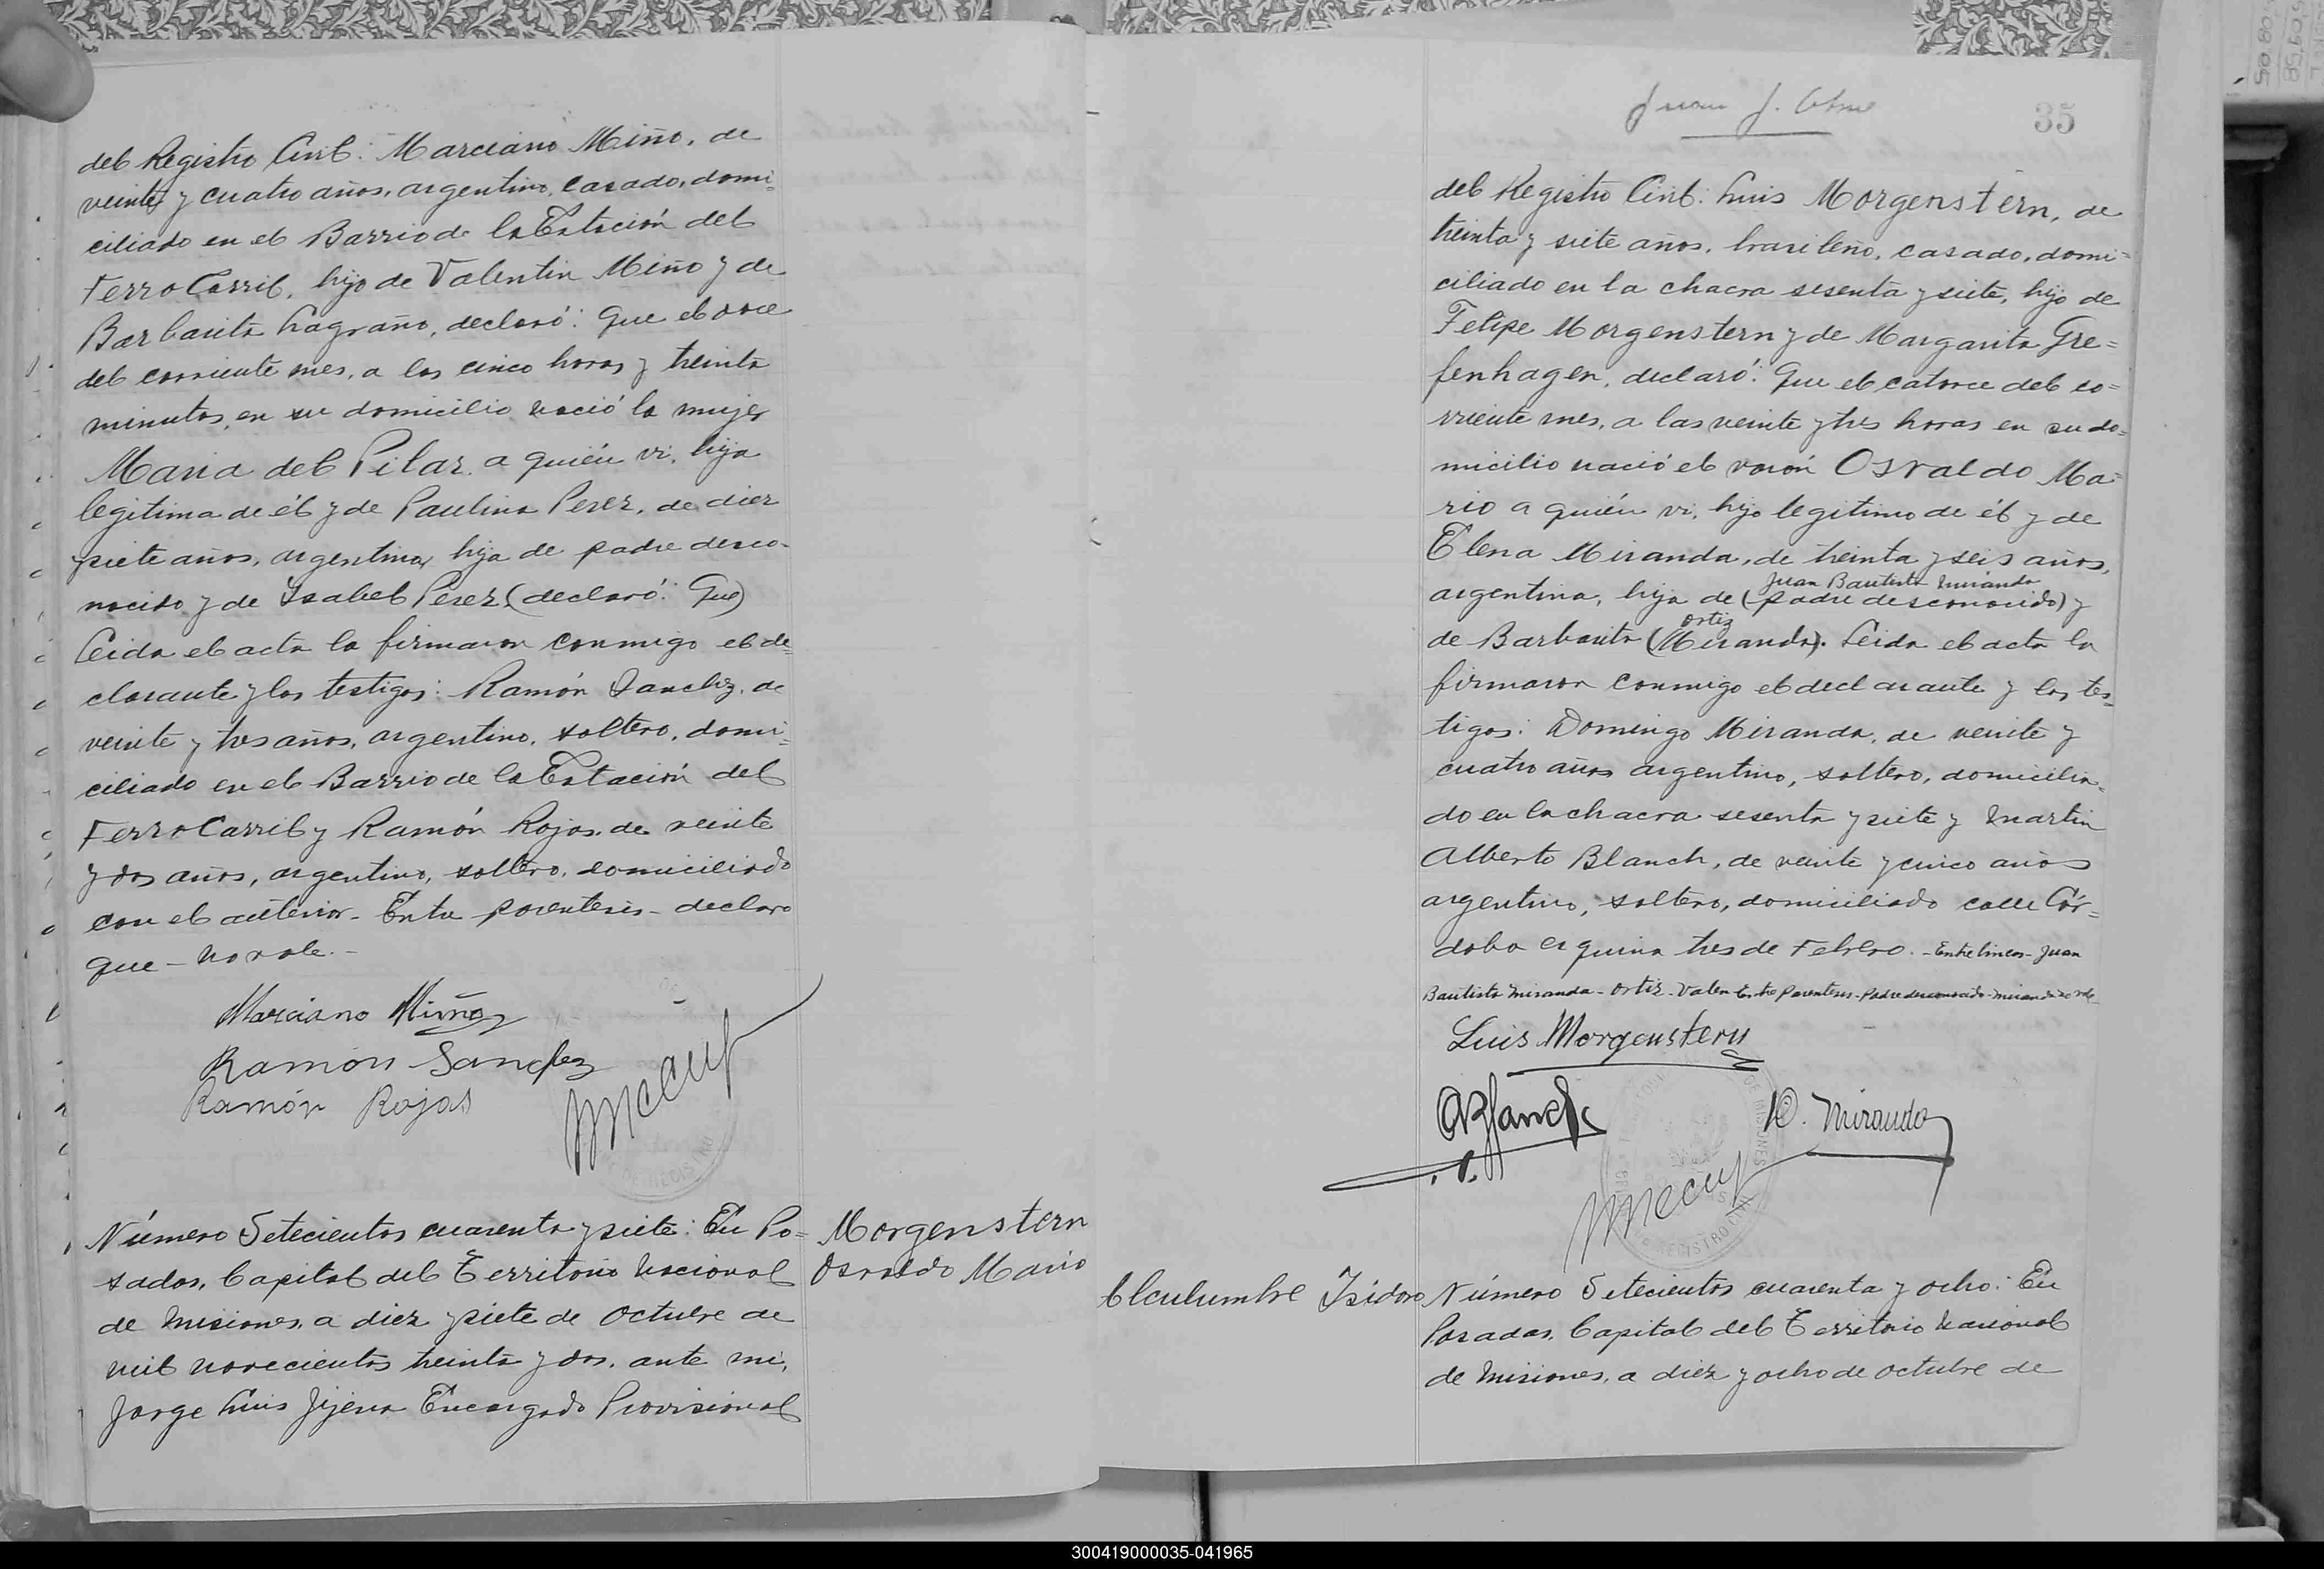 del Registro Civil: Marciano Miño, de
veinte y cuatro años, argentino, casado, domi=
ciliado en el Barrio de la Estación del
Ferro Carril, hijo de Valentin Miño y de
Barbarita Lagraño, declaró: Que el once
del corriente mes, a las cinco horas y treinta
minutos, en su domicilio nació la mujer
Maria del Pilar, a quién vi, hija
legitima de él y de Paulina Perez, de diez
y siete años, argentina, hija de padre desco-
nocido y de Isabel Perez (declaró: Que)
Leida el acta la firmaron conmigo el de=
clarante y los testigos: Ramón Sanchez, de
veinte y tres años, argentino, soltero, domi=
ciliado en el Barrio de la Estación del
Ferro Carril y Ramón Rojas, de veinte
y dos años, argentino, soltero, domiciliado
con el anterior - Entre parentesis - declaro
que - no vale. -
Marciano Miño
Ramón Sanchez
Ramón Rojas
DE REGISTRO
Número Setecientos cuarenta y siete: En Po=
sadas, Capital del Territorio Nacional
de Misiones, a diez y siete de Octubre de
mil novecientos treinta y dos, ante mi,
Jorge Luis Jijena Encargado Provisional
Morgenstern
Osvaldo Mario
Juan J.
35
del Registro Civil: Luis Morgenstern, de
treinta y siete años, brasileño, casado, domi=
ciliado en la chacra sesenta y siete, hijo de
Felipe Morgenstern y de Margarita Gre=
fenhagen, declaró: Que el catorce del co=
rriente mes, a las veinte y tres horas en su do=
micilio nació el varón Osvaldo Ma=
rio a quién vi, hijo legitimo de él y de
Elena Miranda, de treinta y seis años,
Juan Bautista Miranda
argentina, hija de (padre desconocido) y
Ortiz
de Barbarita (Miranda). Leida el acta la
firmaron conmigo el declarante y los tes=
tigos: Domingo Miranda, de veinte y
cuatro años argentino, soltero, domicilia=
do en la chacra sesenta y siete y Martin
Alberto Blanch, de veinte y cinco años
argentino, soltero, domiciliado calle Cór=
doba esquina tres de Febrero. - Entre lineas - Juan
Bautista Miranda - Ortiz - Valen - Entre parentesis - Padre desconocido - Miranda no vale
Luis Morgenstern
D. Miranda
DE MISIONES
REGISTRO CIVIL
Isidoro
Número Setecientos cuarenta y ocho: En
Posadas, Capital del Territorio Nacional
de Misiones, a diez y ocho de Octubre de
300419000035-041965